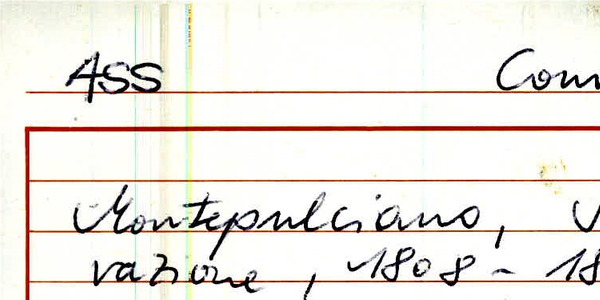 ASS Com
Montepulciano, V
vazione, 1808 - 18